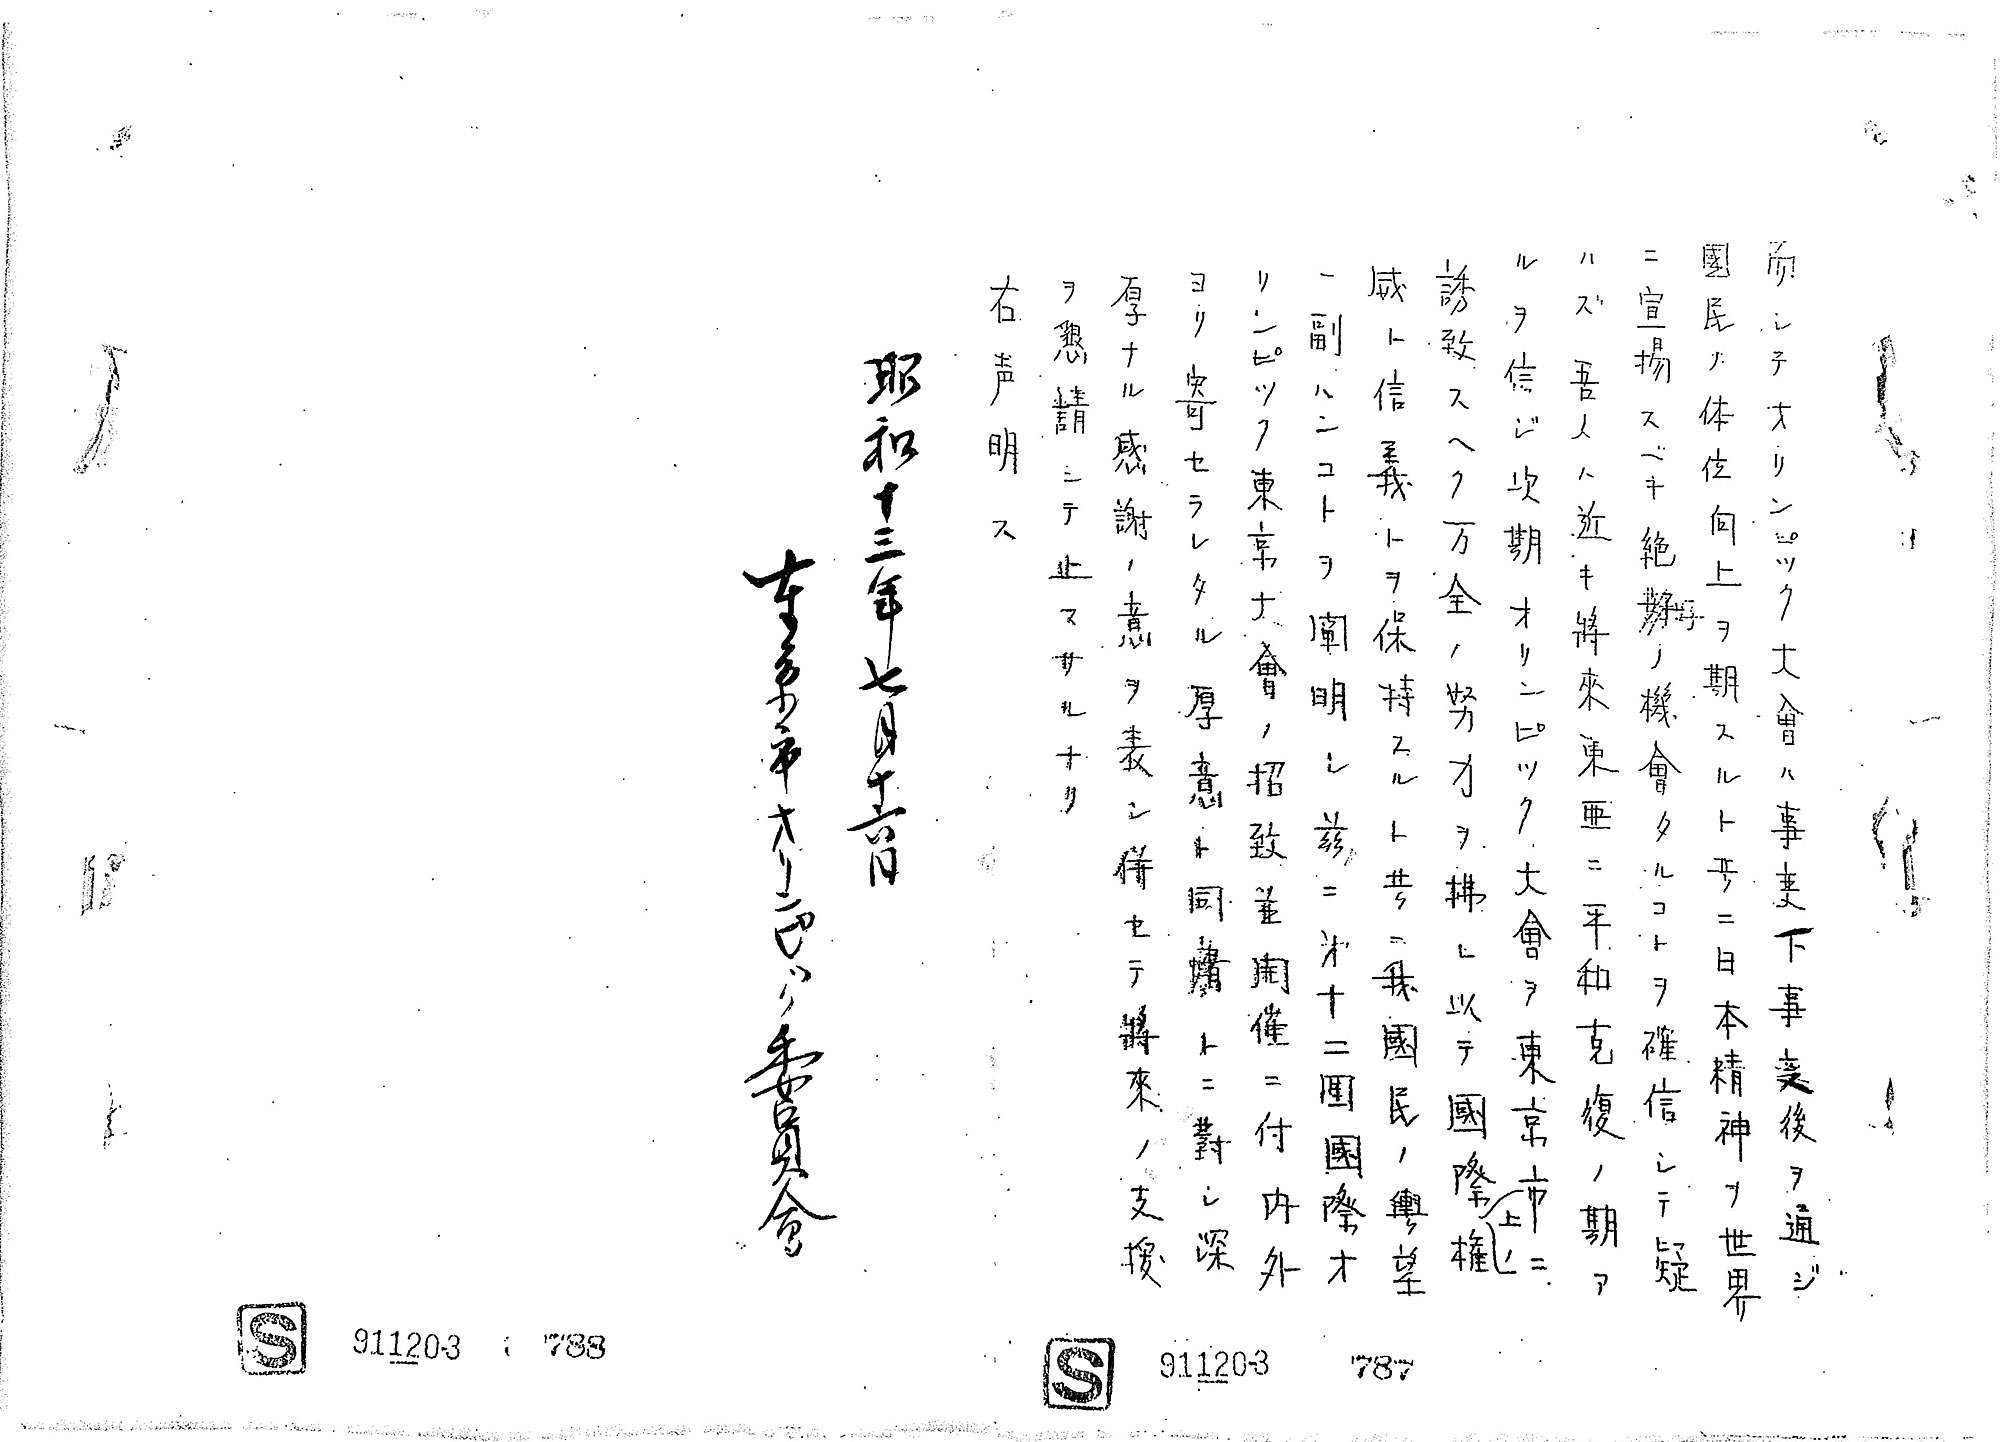 而シテオリンピック大會ハ事変下事変後ヲ通ジ
國民ノ体位向上ヲ期スルト共ニ日本精神ヲ世界
ニ宣揚スベキ絶好ノ機會タルコトヲ確信シテ疑
ハズ吾人ハ近キ將來東亜ニ平和克復ノ期ア
ルヲ信ジ次期オリンピック大會ヲ東京市ニ
誘致スヘク万全ノ努力ヲ拂ヒ以テ國際権上ノ
威ト信義トヲ保持スルト共ニ我國民ノ輿望
ニ副ハンコトヲ闡明シ茲ニ第十二囬國際オ
リンピック東京大會ノ招致並開催ニ付内外
ヨリ寄セラレタル厚意ト同情トニ對シ深
厚ナル感謝ノ意ヲ表シ併セテ將來ノ支援
ヲ懇請シテ止マサルナリ
右声明ス
昭和十三年七月十六日
東京市オリンピック委員會
S 91120-3 787
S 91120-3 788